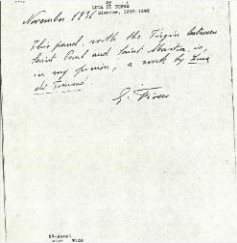 LUCA DI TOMME
November 1931
This panel, with the Virgin between
Saint Paul and Saint Martin, is,
in my opinion, a work by Luca
di Tommé.